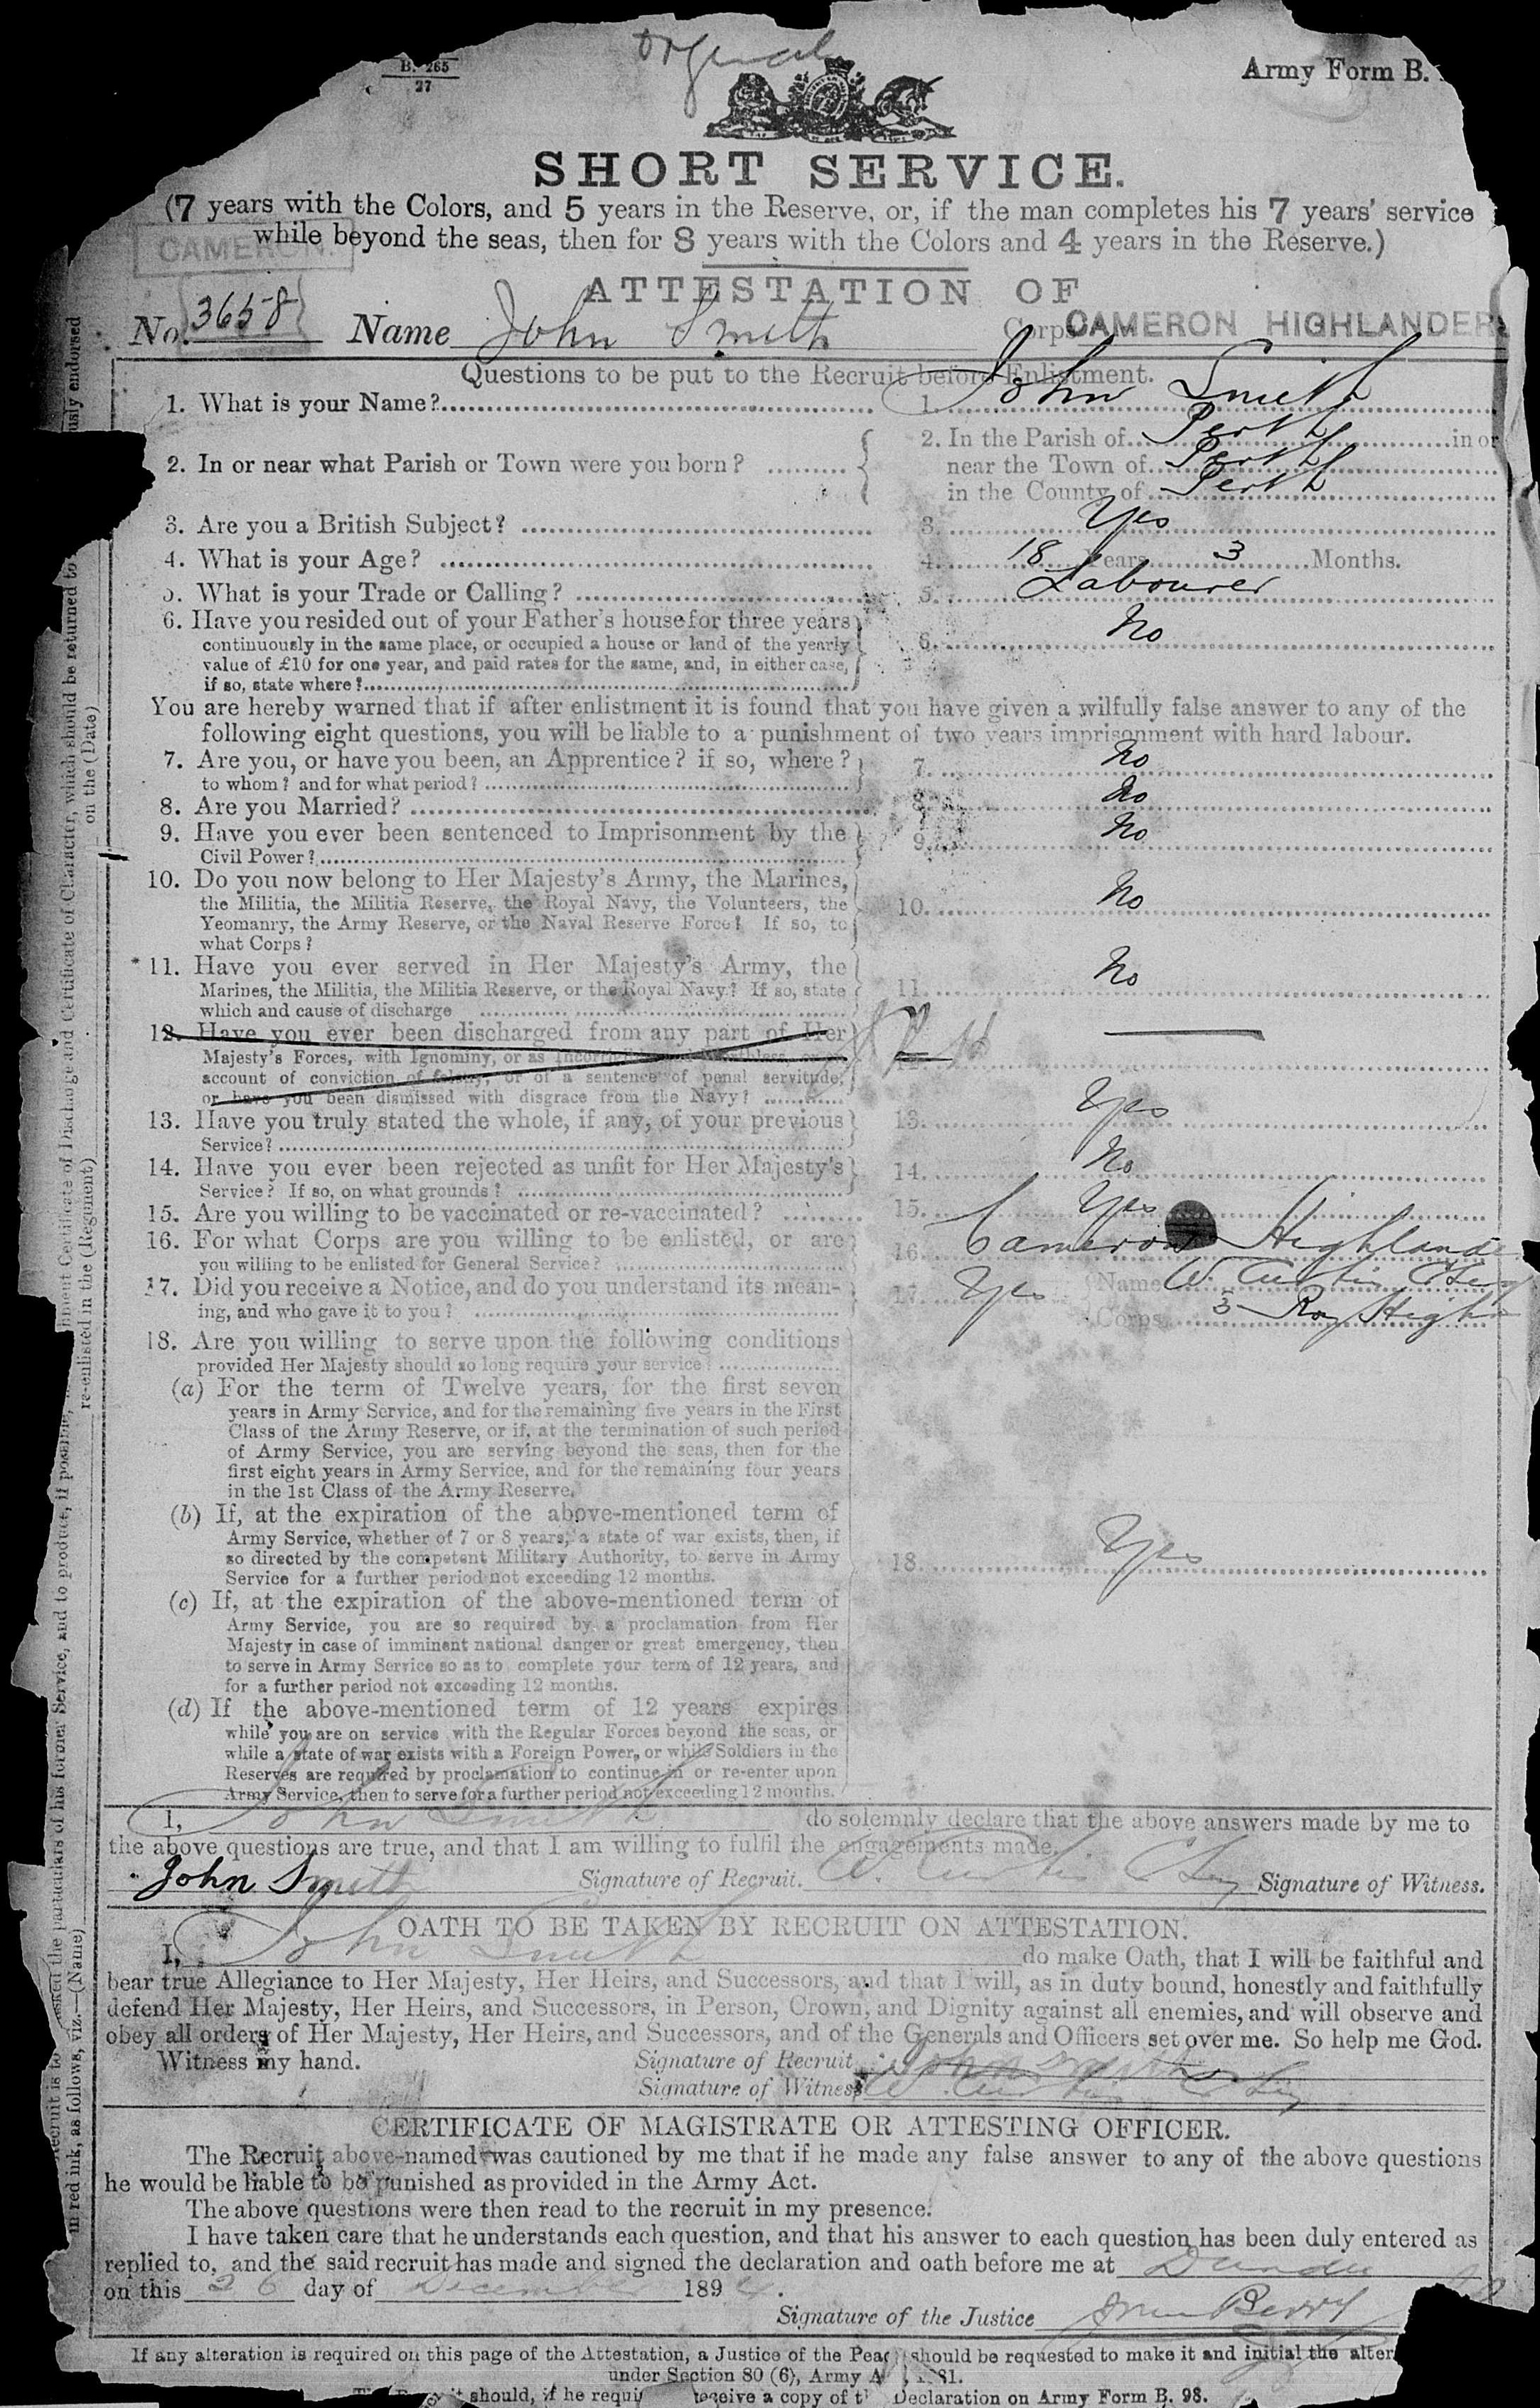 Original
B. 265
27
Army Form B.
SHORT SERVICE.
(7 years with the Colors, and 5 years in the Reserve, or, if the man completes his 7 years' service
while beyond the seas, then for 8 years with the Colors and 4 years in the Reserve.)
CAMERON
ATTESTATION OF
No. 3658 Name John Smith Corps CAMERON HIGHLANDER
Questions to be put to the Recruit before Enlistment.
1. What is your Name? 1. John Smith
2. In or near what Parish or Town were you born? 2. In the Parish of Perth in or
near the Town of Perth
in the County of Perth
3. Are you a British Subject? 3. Yes
4. What is your Age? 4. 18 Years 3 Months.
5. What is your Trade or Calling? 5. Labourer
6. Have you resided out of your Father's house for three years 6. No
continuously in the same place, or occupied a house or land of the yearly
value of £10 for one year, and paid rates for the same, and, in either case,
if so, state where?
You are hereby warned that if after enlistment it is found that you have given a wilfully false answer to any of the
following eight questions, you will be liable to a punishment of two years imprisonment with hard labour.
7. Are you, or have you been, an Apprentice? if so, where? 7. No
to whom? and for what period?
8. Are you Married? 8. No
9. Have you ever been sentenced to Imprisonment by the 9. No
Civil Power?
10. Do you now belong to Her Majesty's Army, the Marines, 10. No
the Militia, the Militia Reserve, the Royal Navy, the Volunteers, the
Yeomanry, the Army Reserve, or the Naval Reserve Force? If so, to
what Corps?
*11. Have you ever served in Her Majesty's Army, the 11. No
Marines, the Militia, the Militia Reserve, or the Royal Navy? If so, state
which and cause of discharge
12. Have you ever been discharged from any part of Her 12.
Majesty's Forces, with Ignominy, or as Incorrigible and Worthless, or on
account of conviction of felony, or of a sentence of penal servitude,
or have you been dismissed with disgrace from the Navy?
13. Have you truly stated the whole, if any, of your previous 13. Yes
Service?
14. Have you ever been rejected as unfit for Her Majesty's 14. No
Service? If so, on what grounds?
15. Are you willing to be vaccinated or re-vaccinated? 15. Yes
16. For what Corps are you willing to be enlisted, or are 16. Cameron Highlande
you willing to be enlisted for General Service?
17. Did you receive a Notice, and do you understand its mean- 17. Yes Name W. Curtis
ing, and who gave it to you? Corps Roy High
18. Are you willing to serve upon the following conditions
provided Her Majesty should so long require your service?
(a) For the term of Twelve years, for the first seven
years in Army Service, and for the remaining five years in the First
Class of the Army Reserve, or if, at the termination of such period
of Army Service, you are serving beyond the seas, then for the
first eight years in Army Service, and for the remaining four years
in the 1st Class of the Army Reserve.
(b) If, at the expiration of the above-mentioned term of
Army Service, whether of 7 or 8 years, a state of war exists, then, if
so directed by the competent Military Authority, to serve in Army 18. Yes
Service for a further period not exceeding 12 months.
(c) If, at the expiration of the above-mentioned term of
Army Service, you are so required by a proclamation from Her
Majesty in case of imminent national danger or great emergency, then
to serve in Army Service so as to complete your term of 12 years, and
for a further period not exceeding 12 months.
(d) If the above-mentioned term of 12 years expires
while you are on service with the Regular Forces beyond the seas, or
while a state of war exists with a Foreign Power, or while Soldiers in the
Reserves are required by proclamation to continue in or re-enter upon
Army Service, then to serve for a further period not exceeding 12 months.
I, John Smith do solemnly declare that the above answers made by me to
the above questions are true, and that I am willing to fulfil the engagements made.
John Smith Signature of Recruit. W. Curtis Signature of Witness.
OATH TO BE TAKEN BY RECRUIT ON ATTESTATION.
I, John Smith do make Oath, that I will be faithful and
bear true Allegiance to Her Majesty, Her Heirs, and Successors, and that I will, as in duty bound, honestly and faithfully
defend Her Majesty, Her Heirs, and Successors, in Person, Crown, and Dignity against all enemies, and will observe and
obey all orders of Her Majesty, Her Heirs, and Successors, and of the Generals and Officers set over me. So help me God.
Witness my hand. Signature of Recruit John Smith
Signature of Witness W. Curtis
CERTIFICATE OF MAGISTRATE OR ATTESTING OFFICER.
The Recruit above-named was cautioned by me that if he made any false answer to any of the above questions
he would be liable to be punished as provided in the Army Act.
The above questions were then read to the recruit in my presence.
I have taken care that he understands each question, and that his answer to each question has been duly entered as
replied to, and the said recruit has made and signed the declaration and oath before me at Dundee
on this 26 day of December 189
Signature of the Justice Berry
If any alteration is required on this page of the Attestation, a Justice of the Peace should be requested to make it and initial the alter
under Section 80 (6), Army A , 1881.
should, if he requi receive a copy of Declaration on Army Form B. 98.
ment Certificate of Discharge and Certificate of Character, which should be returned to
re-enlisted in the (Regiment) on the (Date)
the particulars of his former Service, and to produce, if possible,
in red ink, as follows, viz.—(Name)